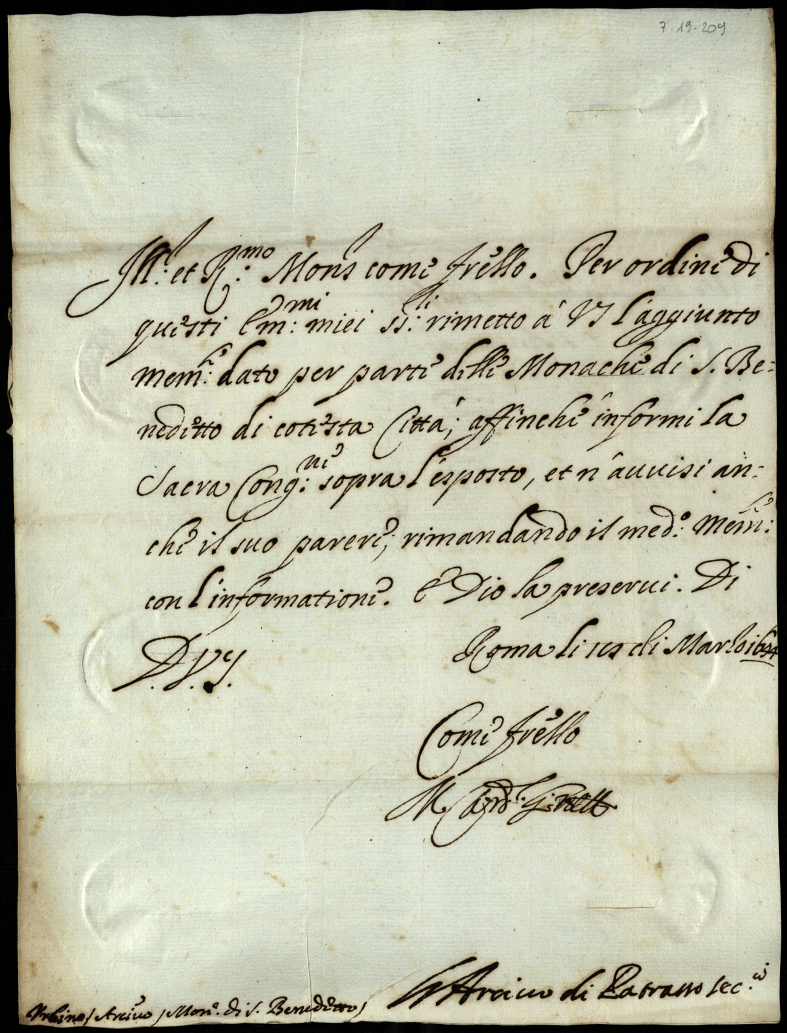 7.19.209
Ill.e et R.mo Mons.r come fr̃ello. Per ordine di
questi Em.mi miei SS.ri rimetto à VS l'aggiunto
mem.le dato per parte delle Monache di S. Be=
nedetto di cotesta Città; affinche informi la
Sacra Cong.ne sopra l'esposto, et n'auuisi an=
che il suo parere; rimandando il med.o mem.le
con l'informatione. E Dio la preserui. Di
Roma li di Marzo 1644
D.V.S.
Come fr̃ello
M Card.l Ginetti
L'Arciuo di Patrasso sec.rio
Vrbino / Arciuo / Mon.e di S. Benedetto /